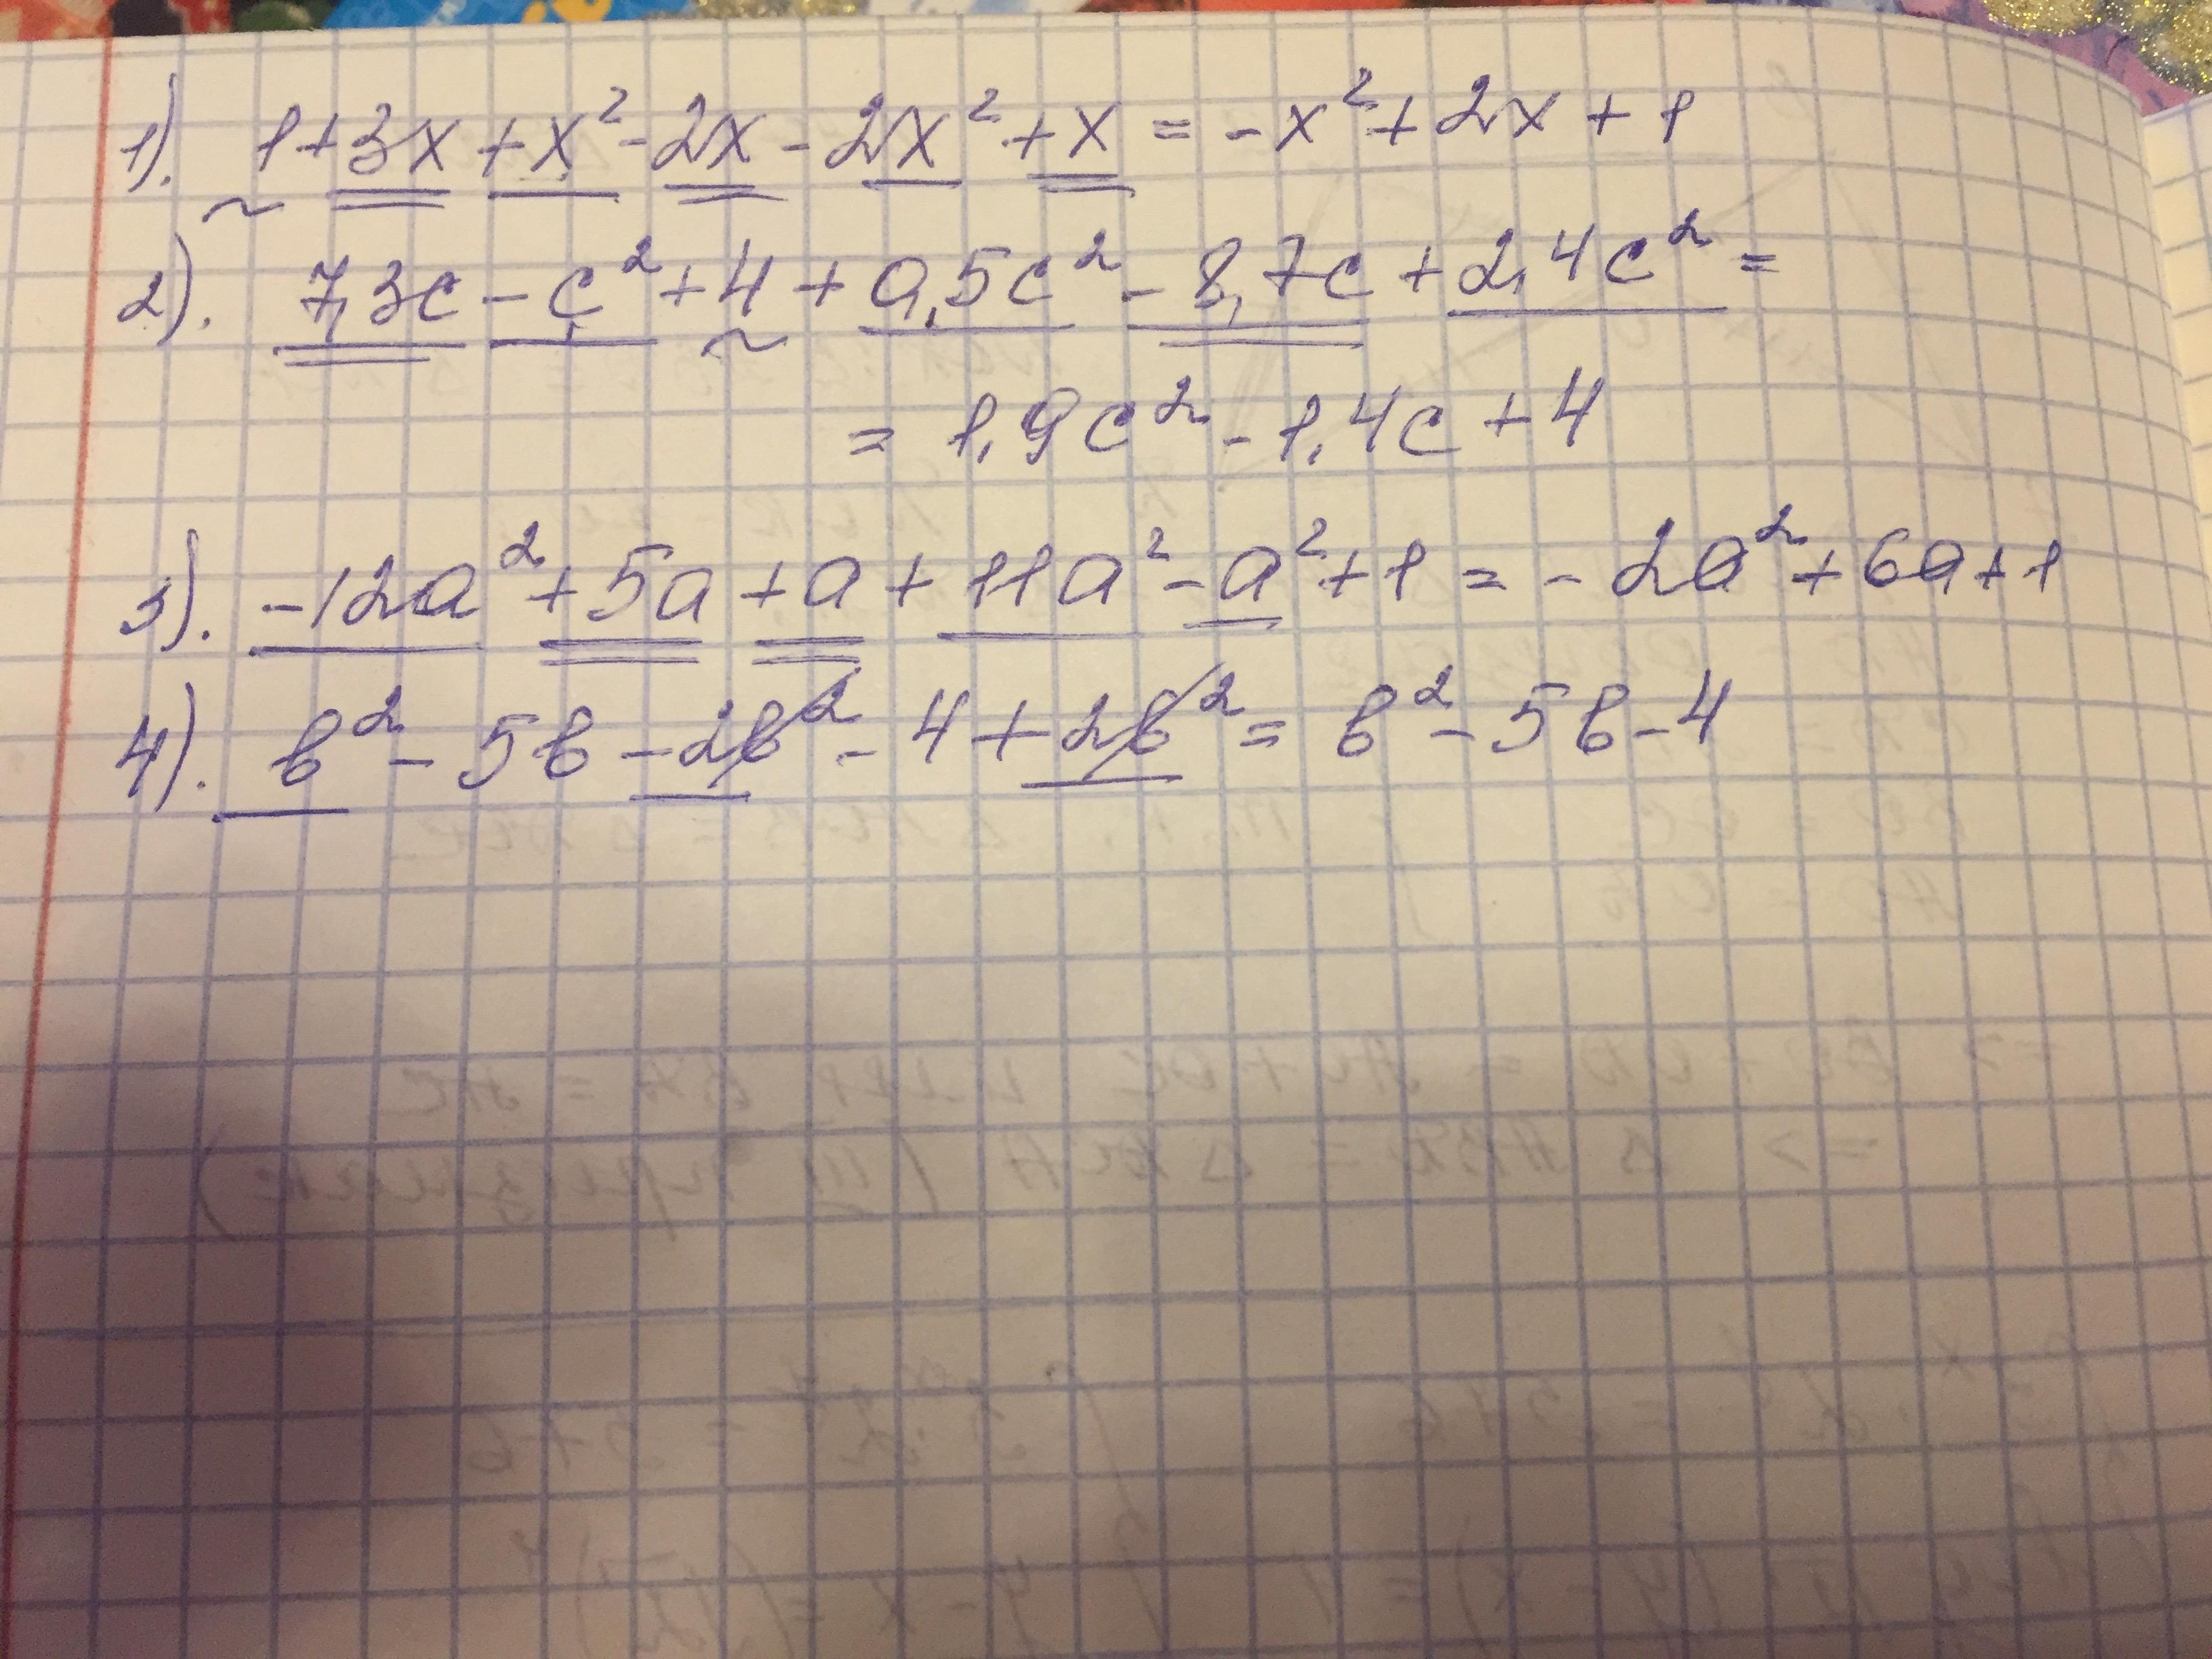 1). 1+3x+x²-2x-2x²+x=-x²+2x+1
2). 7,3c-c²+4+0,5c²-8,7c+2,4c²=
= 1,9c²-1,4c+4
3). -12a²+5a+a+11a²-a²+1=-2a²+6a+1
4). b²-5b-2b²-4+2b²=b²-5b-4